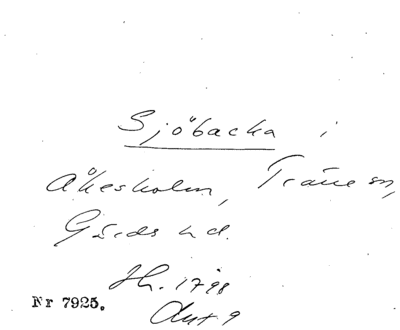 Sjöbacka i
Åkesholm, Träne sn,
Gärds hd.
Jh. 1798
Nr 7925.
Akt 9